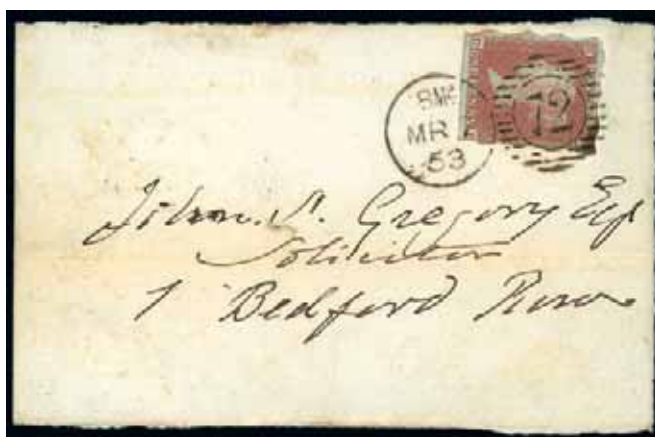 BNK
MR
53
72
John. S. Gregory Esq
Solicitor
1 Bedford Row